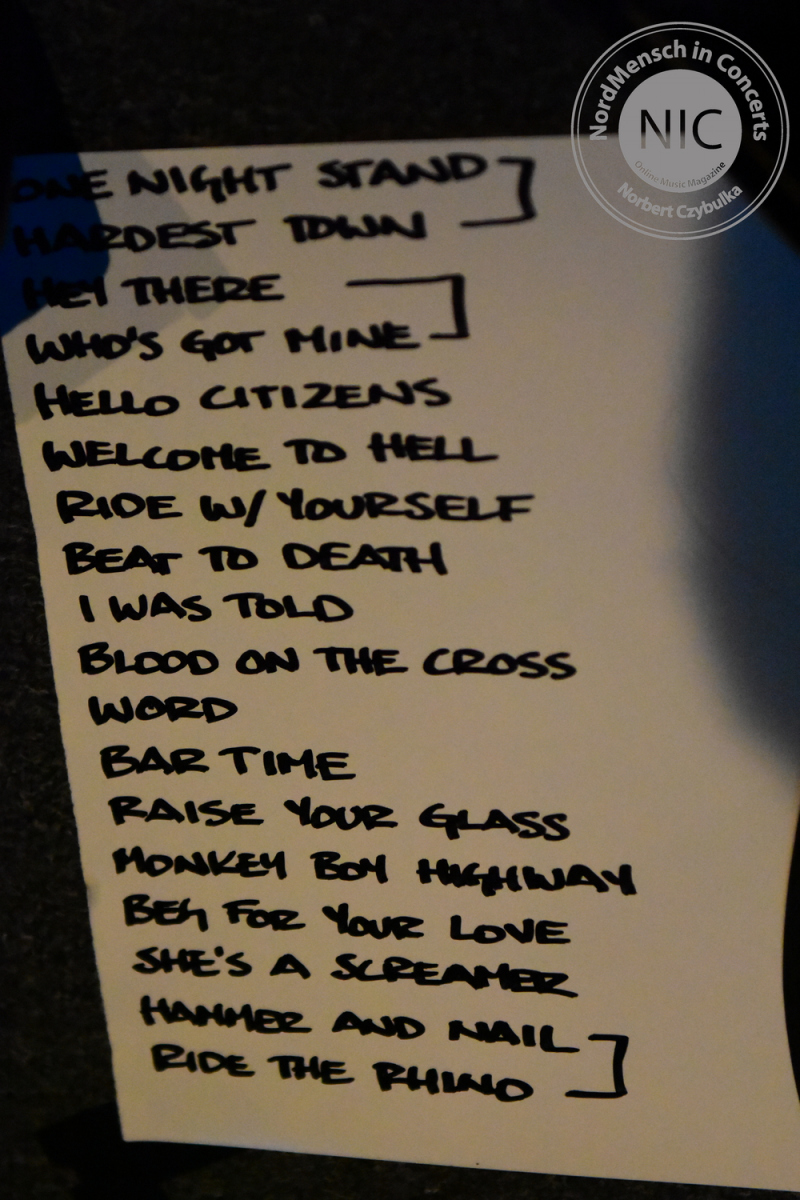 NordMensch in Concerts
NIC
Online Music Magazine
Norbert Czybulka
ONE NIGHT STAND
HARDEST TOWN
HEY THERE
WHO'S GOT MINE
HELLO CITIZENS
WELCOME TO HELL
RIDE W/ YOURSELF
BEAT TO DEATH
I WAS TOLD
BLOOD ON THE CROSS
WORD
BAR TIME
RAISE YOUR GLASS
MONKEY BOY HIGHWAY
BEG FOR YOUR LOVE
SHE'S A SCREAMER
HAMMER AND NAIL
RIDE THE RHINO